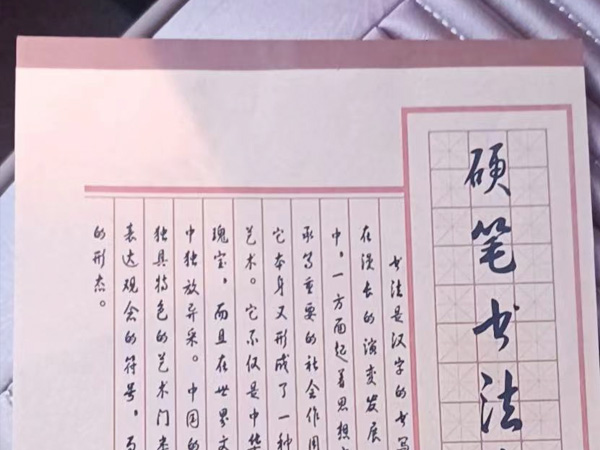 硬笔书法
书法是汉字的书写
在漫长的演变发展
中，一方面起着思想
承等重要的社会作用
它本身又形成了一种
艺术。它不仅是中华
瑰宝，而且在世界文
中独放异采。中国的
独具特色的艺术门类
表达观念的符号，而
的形态。